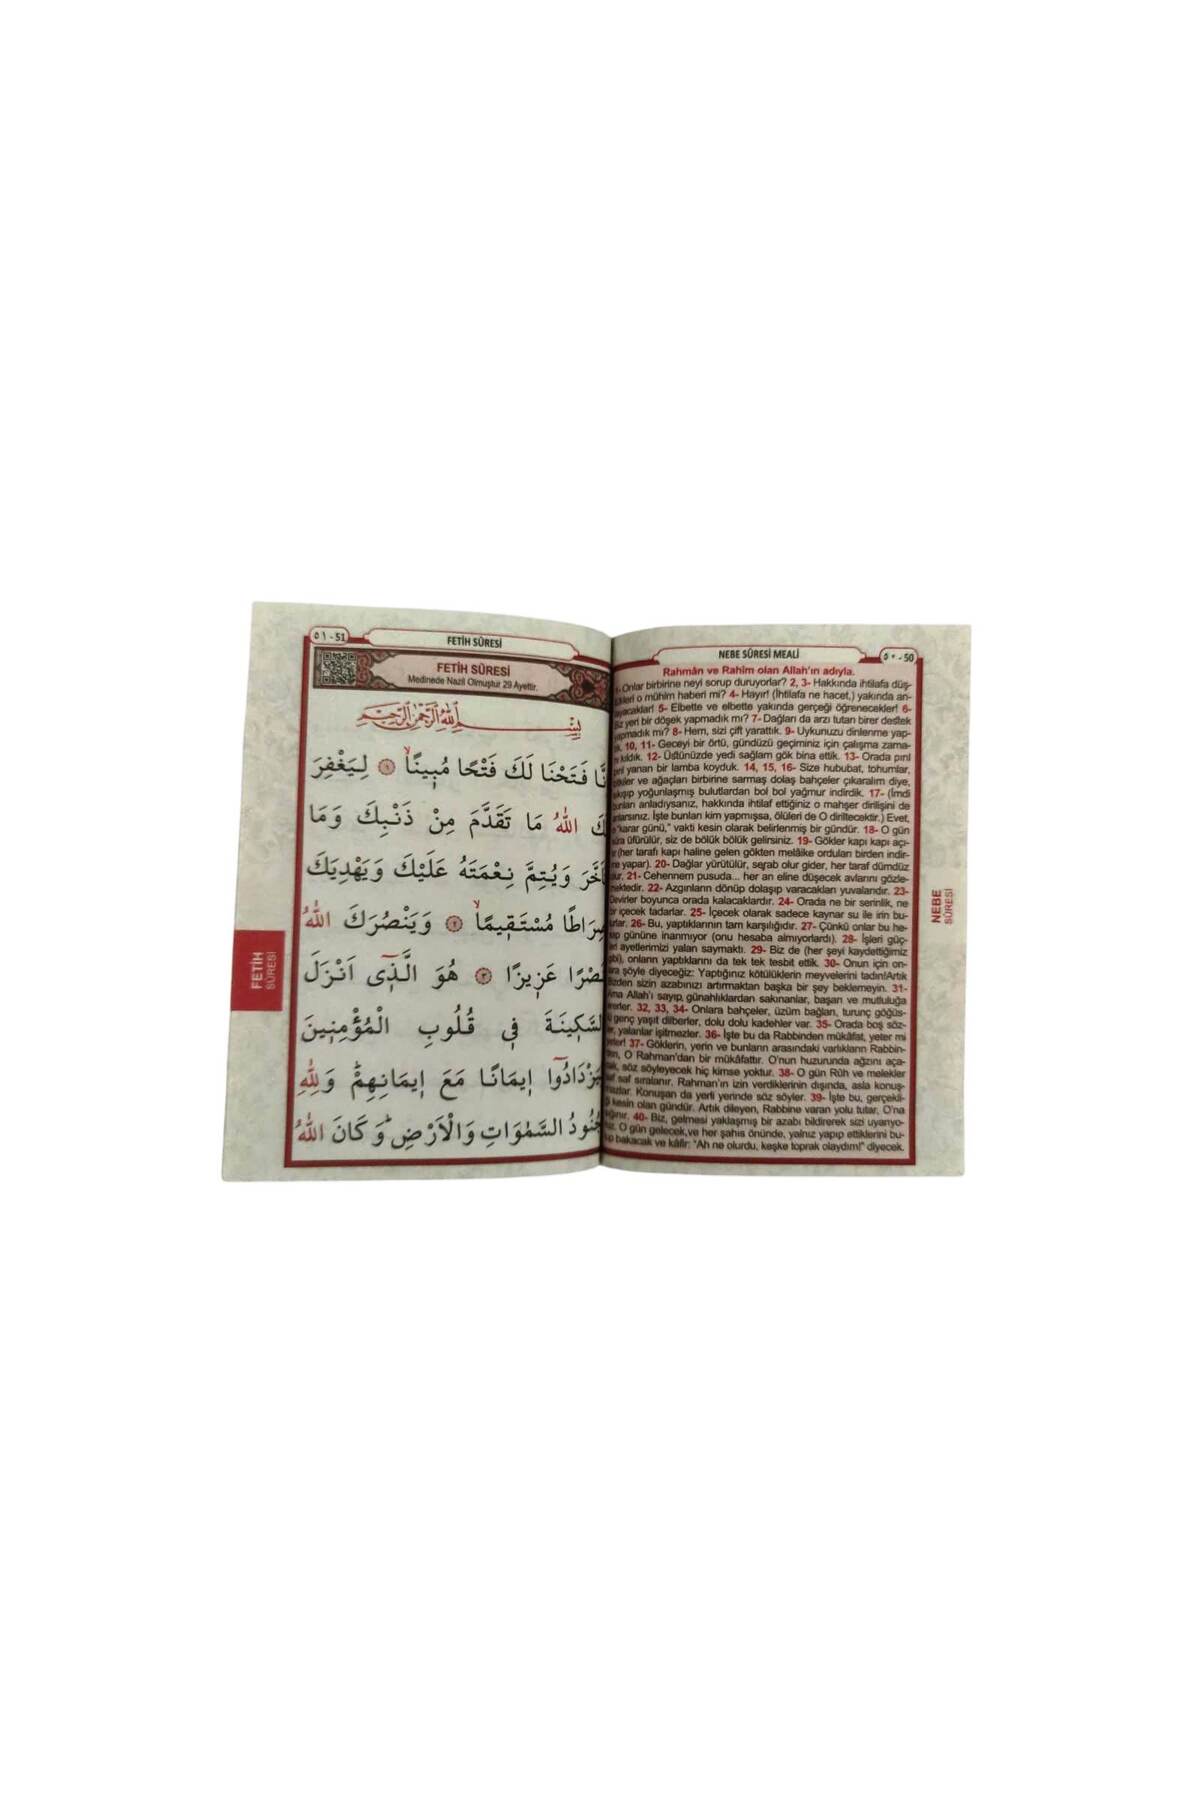 ٥١ - 51
FETİH SÛRESİ
FETİH SÛRESİ
Medinede Nazil Olmuştur 29 Ayettir.
بِسْمِ اللّٰهِ الرَّحْمٰنِ الرَّحٖيمِ
فَتَحْنَا لَكَ فَتْحًا مُبٖينًاۙ ﴿١﴾ لِيَغْفِرَ
اللّٰهُ مَا تَقَدَّمَ مِنْ ذَنْبِكَ وَمَا
وَيُتِمَّ نِعْمَتَهُ عَلَيْكَ وَيَهْدِيَكَ
صِرَاطًا مُسْتَقٖيمًاۙ ﴿٢﴾ وَيَنْصُرَكَ اللّٰهُ
نَصْرًا عَزٖيزًا ﴿٣﴾ هُوَ الَّذٖٓى اَنْزَلَ
السَّكٖينَةَ فٖى قُلُوبِ الْمُؤْمِنٖينَ
اٖيمَانًا مَعَ اٖيمَانِهِمْؕ وَلِلّٰهِ
جُنُودُ السَّمٰوَاتِ وَالْاَرْضِؕ وَكَانَ اللّٰهُ
FETİH
SÛRESİ
NEBE SÛRESİ MEALİ
٥٠ - 50
Rahmân ve Rahîm olan Allah'ın adıyla.
1- Onlar birbirine neyi sorup duruyorlar? 2, 3- Hakkında ihtilafa düş-
o mühim haberi mi? 4- Hayır! (İhtilafa ne hacet,) yakında an-
5- Elbette ve elbette yakında gerçeği öğrenecekler! 6-
Biz yeri bir döşek yapmadık mı? 7- Dağları da arzı tutan birer destek
yapmadık mı? 8- Hem, sizi çift yarattık. 9- Uykunuzu dinlenme yap-
10, 11- Geceyi bir örtü, gündüzü geçiminiz için çalışma zama-
kıldık. 12- Üstünüzde yedi sağlam gök bina ettik. 13- Orada pırıl
yanan bir lamba koyduk. 14, 15, 16- Size hububat, tohumlar,
ve ağaçları birbirine sarmaş dolaş bahçeler çıkaralım diye,
yoğunlaşmış bulutlardan bol bol yağmur indirdik. 17- (İmdi
bunları anladıysanız, hakkında ihtilaf ettiğiniz o mahşer dirilişini de
İşte bunları kim yapmışsa, ölüleri de O diriltecektir.) Evet,
o "karar günü," vakti kesin olarak belirlenmiş bir gündür. 18- O gün
üfürülür, siz de bölük bölük gelirsiniz. 19- Gökler kapı kapı açı-
(her tarafı kapı haline gelen gökten melâike orduları birden indir-
yapar). 20- Dağlar yürütülür, serab olur gider, her taraf dümdüz
21- Cehennem pusuda... her an eline düşecek avlarını gözle-
mektedir. 22- Azgınların dönüp dolaşıp varacakları yuvalarıdır. 23-
Devirler boyunca orada kalacaklardır. 24- Orada ne bir serinlik, ne
bir içecek tadarlar. 25- İçecek olarak sadece kaynar su ile irin bu-
26- Bu, yaptıklarının tam karşılığıdır. 27- Çünkü onlar bu he-
gününe inanmıyor (onu hesaba almıyorlardı). 28- İşleri güç-
ayetlerimizi yalan saymaktı. 29- Biz de (her şeyi kaydettiğimiz
gibi), onların yaptıklarını da tek tek tesbit ettik. 30- Onun için on-
şöyle diyeceğiz: Yaptığınız kötülüklerin meyvelerini tadın!Artık
Bizden sizin azabınızı artırmaktan başka bir şey beklemeyin. 31-
Ama Allah'ı sayıp, günahlıklardan sakınanlar, başarı ve mutluluğa
ererler. 32, 33, 34- Onlara bahçeler, üzüm bağları, turunç göğüs-
genç yaşıt dilberler, dolu dolu kadehler var. 35- Orada boş söz-
yalanlar işitmezler. 36- İşte bu da Rabbinden mükâfat, yeter mi
yeter! 37- Göklerin, yerin ve bunların arasındaki varlıkların Rabbin-
O Rahman'dan bir mükâfattır. O'nun huzurunda ağzını aça-
söz söyleyecek hiç kimse yoktur. 38- O gün Rûh ve melekler
saf saf sıralanır. Rahman'ın izin verdiklerinin dışında, asla konuş-
Konuşan da yerli yerinde söz söyler. 39- İşte bu, gerçekli-
ği kesin olan gündür. Artık dileyen, Rabbine varan yolu tutar, O'na
40- Biz, gelmesi yaklaşmış bir azabı bildirerek sizi uyarıyo-
O gün gelecek,ve her şahıs önünde, yalnız yapıp ettiklerini bu-
bakacak ve kâfir: "Ah ne olurdu, keşke toprak olaydım!" diyecek.
NEBE
SÛRESİ